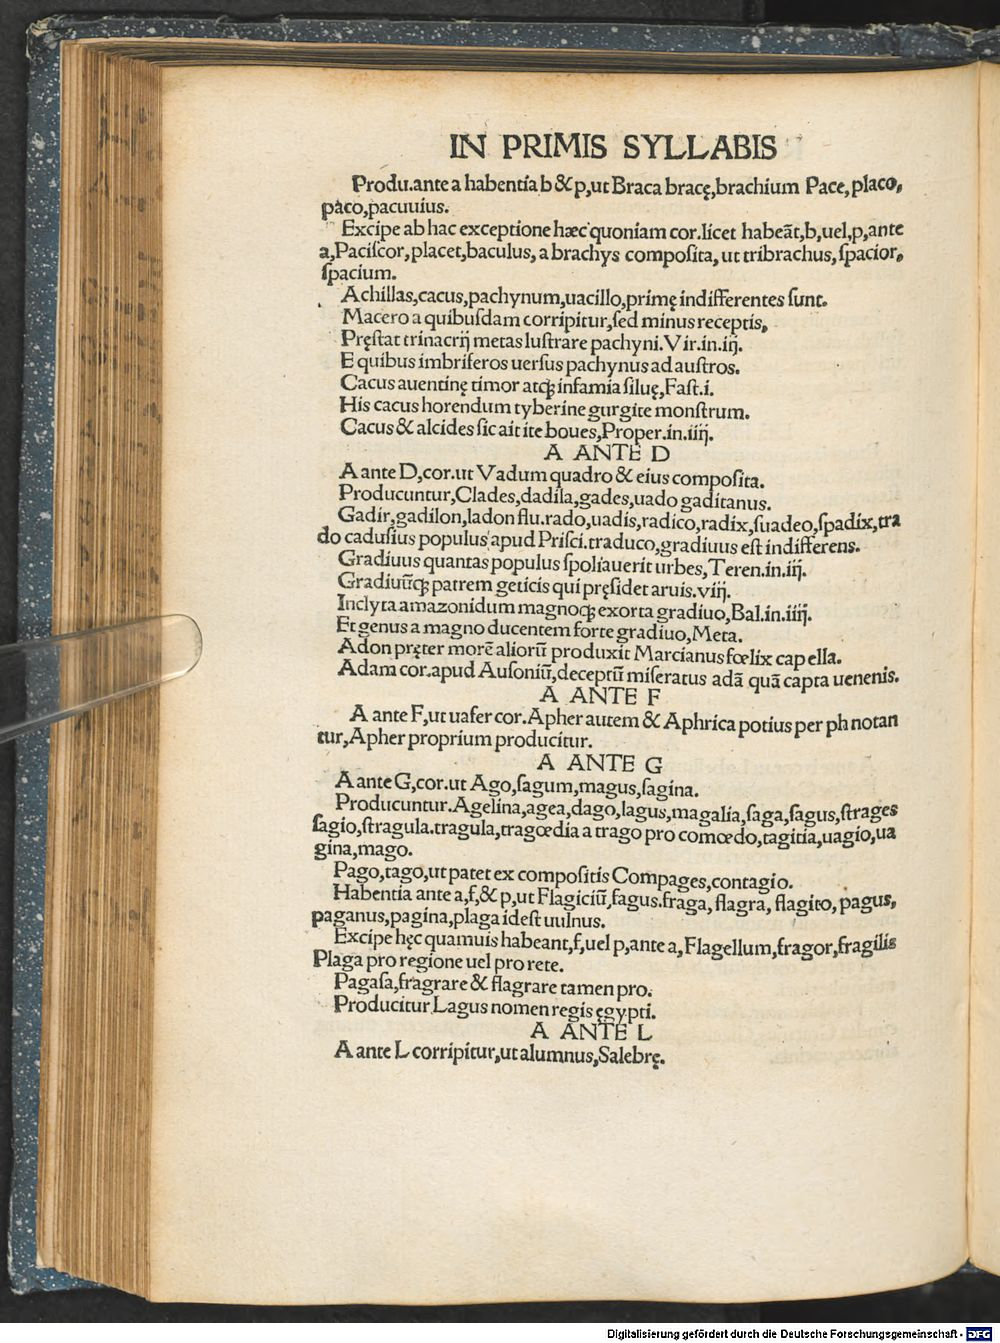 IN PRIMIS SYLLABIS
Produ.ante a habentia b & p,ut Braca bracę,brachium Pace, placo,
paco,pacuuius.
Excipe ab hac exceptione hæc quoniam cor.licet habeāt,b,uel,p,ante
a,Paciſcor,placet,baculus, a brachys compoſita, ut tribrachus, ſpacior,
ſpacium.
Achillas,cacus,pachynum,uacillo,primę indifferentes ſunt.
Macero a quibuſdam corripitur,ſed minus receptis,
Pręſtat trinacrij metas luſtrare pachyni.Vir.in.iij.
E quibus imbriferos uerſus pachynus ad auſtros.
Cacus auentinę timor atq; infamia ſiluę,Faſt.i.
His cacus horendum tyberine gurgite monſtrum.
Cacus & alcides ſic ait ite boues,Proper.in.iiij.
A ANTE D
A ante D,cor.ut Vadum quadro & eius compoſita.
Producuntur,Clades,dadila,gades,uado gaditanus.
Gadir,gadilon,ladon flu.rado,uadis,radico,radix,ſuadeo,ſpadix,tra
do caduſius populus apud Priſci.traduco,gradiuus eſt indifferens.
Gradiuus quantas populus ſpoliauerit urbes, Teren.in.iij.
Gradiuūq; patrem geticis qui pręſidet aruis.viij.
Inclyta amazonidum magnoq; exorta gradiuo, Bal.in.iiij.
Et genus a magno ducentem forte gradiuo, Meta.
Adon pręter morē aliorū produxit Marcianus fœlix capella.
Adam cor.apud Auſoniū,deceptū miſeratus adā quā capta uenenis.
A ANTE F
A ante F,ut uafer cor.Apher autem & Aphrica potius per ph notan
tur,Apher proprium producitur.
A ANTE G
A ante G,cor.ut Ago,ſagum,magus,ſagina.
Producuntur.Agelina,agea,dago,lagus,magalia,ſaga,ſagus,ſtrages
ſagio,ſtragula.tragula,tragœdia a trago pro comœdo,tagitia,uagio,ua
gina,mago.
Pago,tago,ut patet ex compoſitis Compages,contagio.
Habentia ante a,f,& p,ut Flagiciū,fagus.fraga, flagra, flagito, pagus,
paganus,pagina,plaga ideſt uulnus.
Excipe hęc quamuis habeant,f,uel p,ante a,Flagellum,fragor,fragilis
Plaga pro regione uel pro rete.
Pagaſa,fragrare & flagrare tamen pro.
Producitur Lagus nomen regis ęgypti.
A ANTE L
A ante L corripitur,ut alumnus,Salebrę.
Digitalisierung gefördert durch die Deutsche Forschungsgemeinschaft - DFG